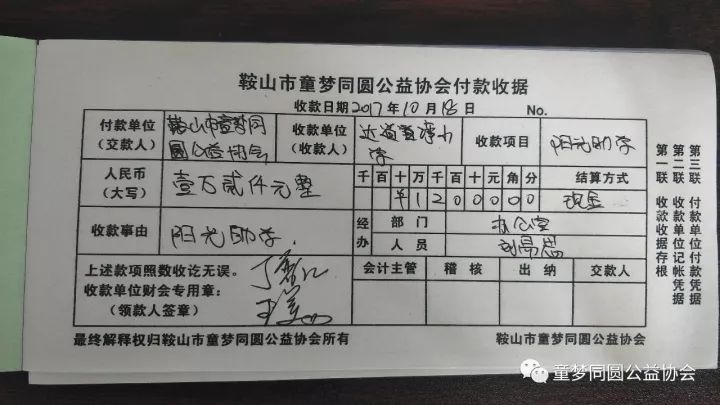 鞍山市童梦同圆公益协会付款收据
收款日期 2017 年 10 月 18 日 No.
付款单位 (交款人) 鞍山市童梦同圆公益协会 收款单位 (收款人) 收款项目 阳光助学
人民币 (大写) 壹万贰仟元整 千 百 十 万 千 百 十 元 角 分 结算方式
¥ 1 2 0 0 0 0 0 现金
收款事由 阳光助学. 经办 部门 办公室
人员
上述款项照数收讫无误。 会计主管 稽核 出纳 交款人
收款单位财会专用章:
(领款人签章)
最终解释权归鞍山市童梦同圆公益协会所有 鞍山市童梦同圆公益协会
第一联 收款收据存根
第二联 收款单位记帐凭据
第三联 付款单位付款凭据
童梦同圆公益协会